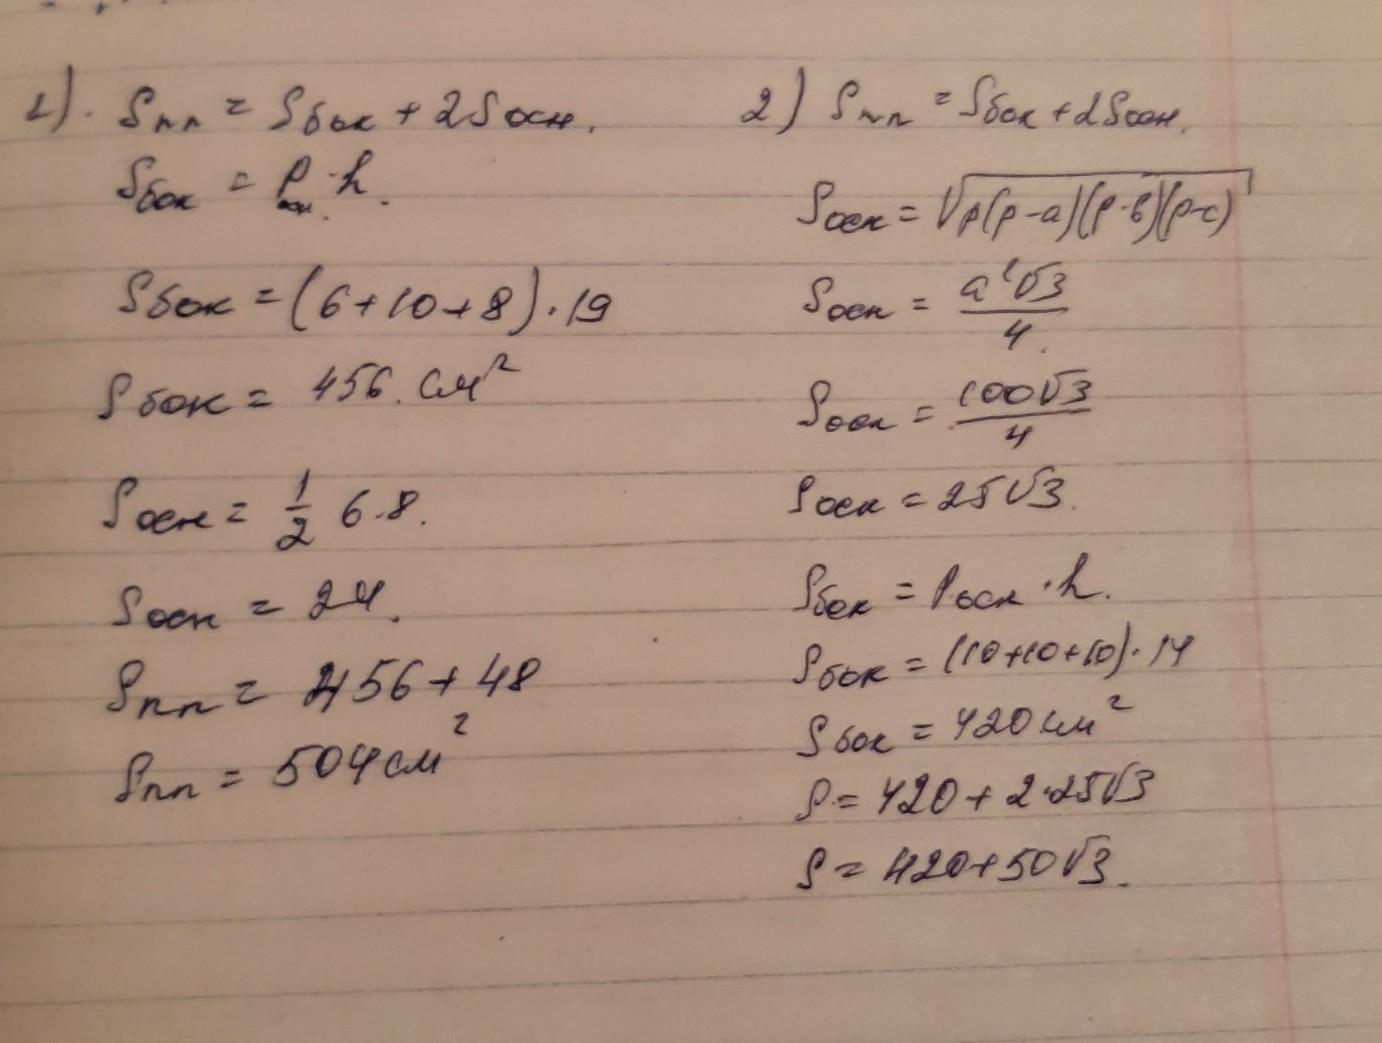 1). Sпп = Sбок + 2Sосн.
Sбок = Pосн. · h.
Sбок = (6+10+8) · 19
Sбок = 456. см²
Sосн = 1/2 6·8.
Sосн = 24.
Sпп = 456 + 48
Sпп = 504 см²
2) Sпп = Sбок + 2Sосн.
Sосн = √p(p-a)(p-b)(p-c)
Sосн = a²√3/4.
Sосн = 100√3/4
Sосн = 25√3.
Sбок = Pосн · h.
Sбок = (10+10+10) · 14
Sбок = 420 см²
S = 420 + 2·25√3
S = 420+50√3.